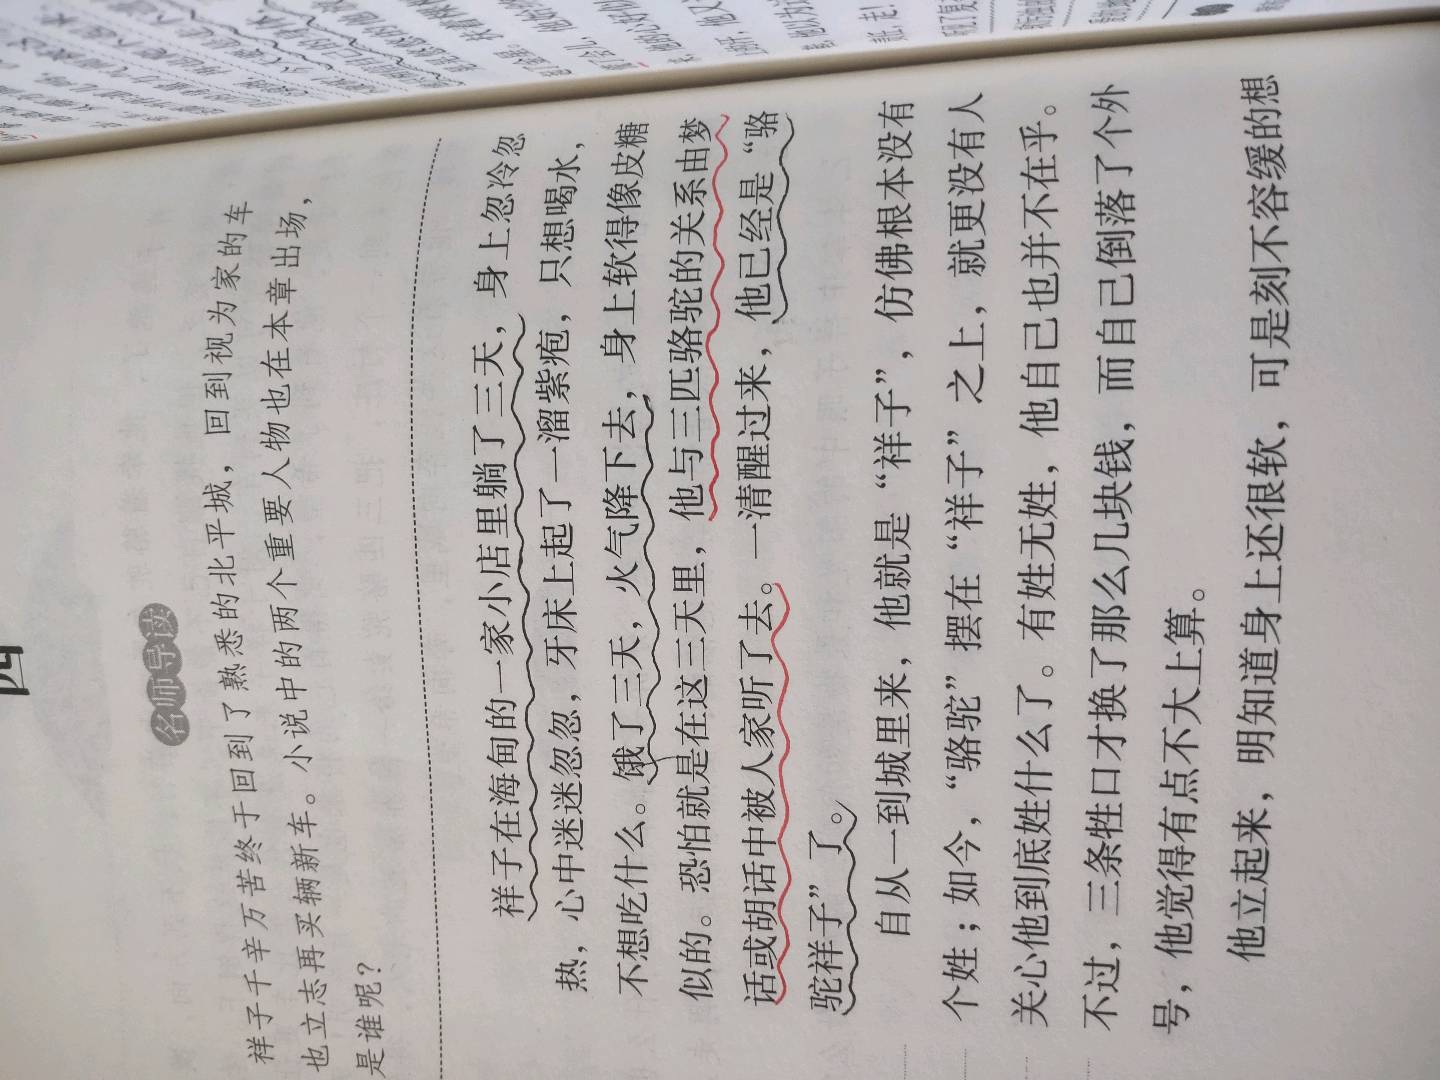 四
名师导读
祥子千辛万苦终于回到了熟悉的北平城，回到视为家的车
也立志再买辆新车。小说中的两个重要人物也在本章出场，
是谁呢？
祥子在海甸的一家小店里躺了三天，身上忽冷忽
热，心中迷迷忽忽，牙床上起了一溜紫疱，只想喝水，
不想吃什么。饿了三天，火气降下去，身上软得像皮糖
似的。恐怕就是在这三天里，他与三匹骆驼的关系由梦
话或胡话中被人家听了去。一清醒过来，他已经是“骆
驼祥子”了。
自从一到城里来，他就是“祥子”，仿佛根本没有
个姓；如今，“骆驼”摆在“祥子”之上，就更没有人
关心他到底姓什么了。有姓无姓，他自己也并不在乎。
不过，三条牲口才换了那么几块钱，而自己倒落了个外
号，他觉得有点不大上算。
他立起来，明知道身上还很软，可是刻不容缓的想